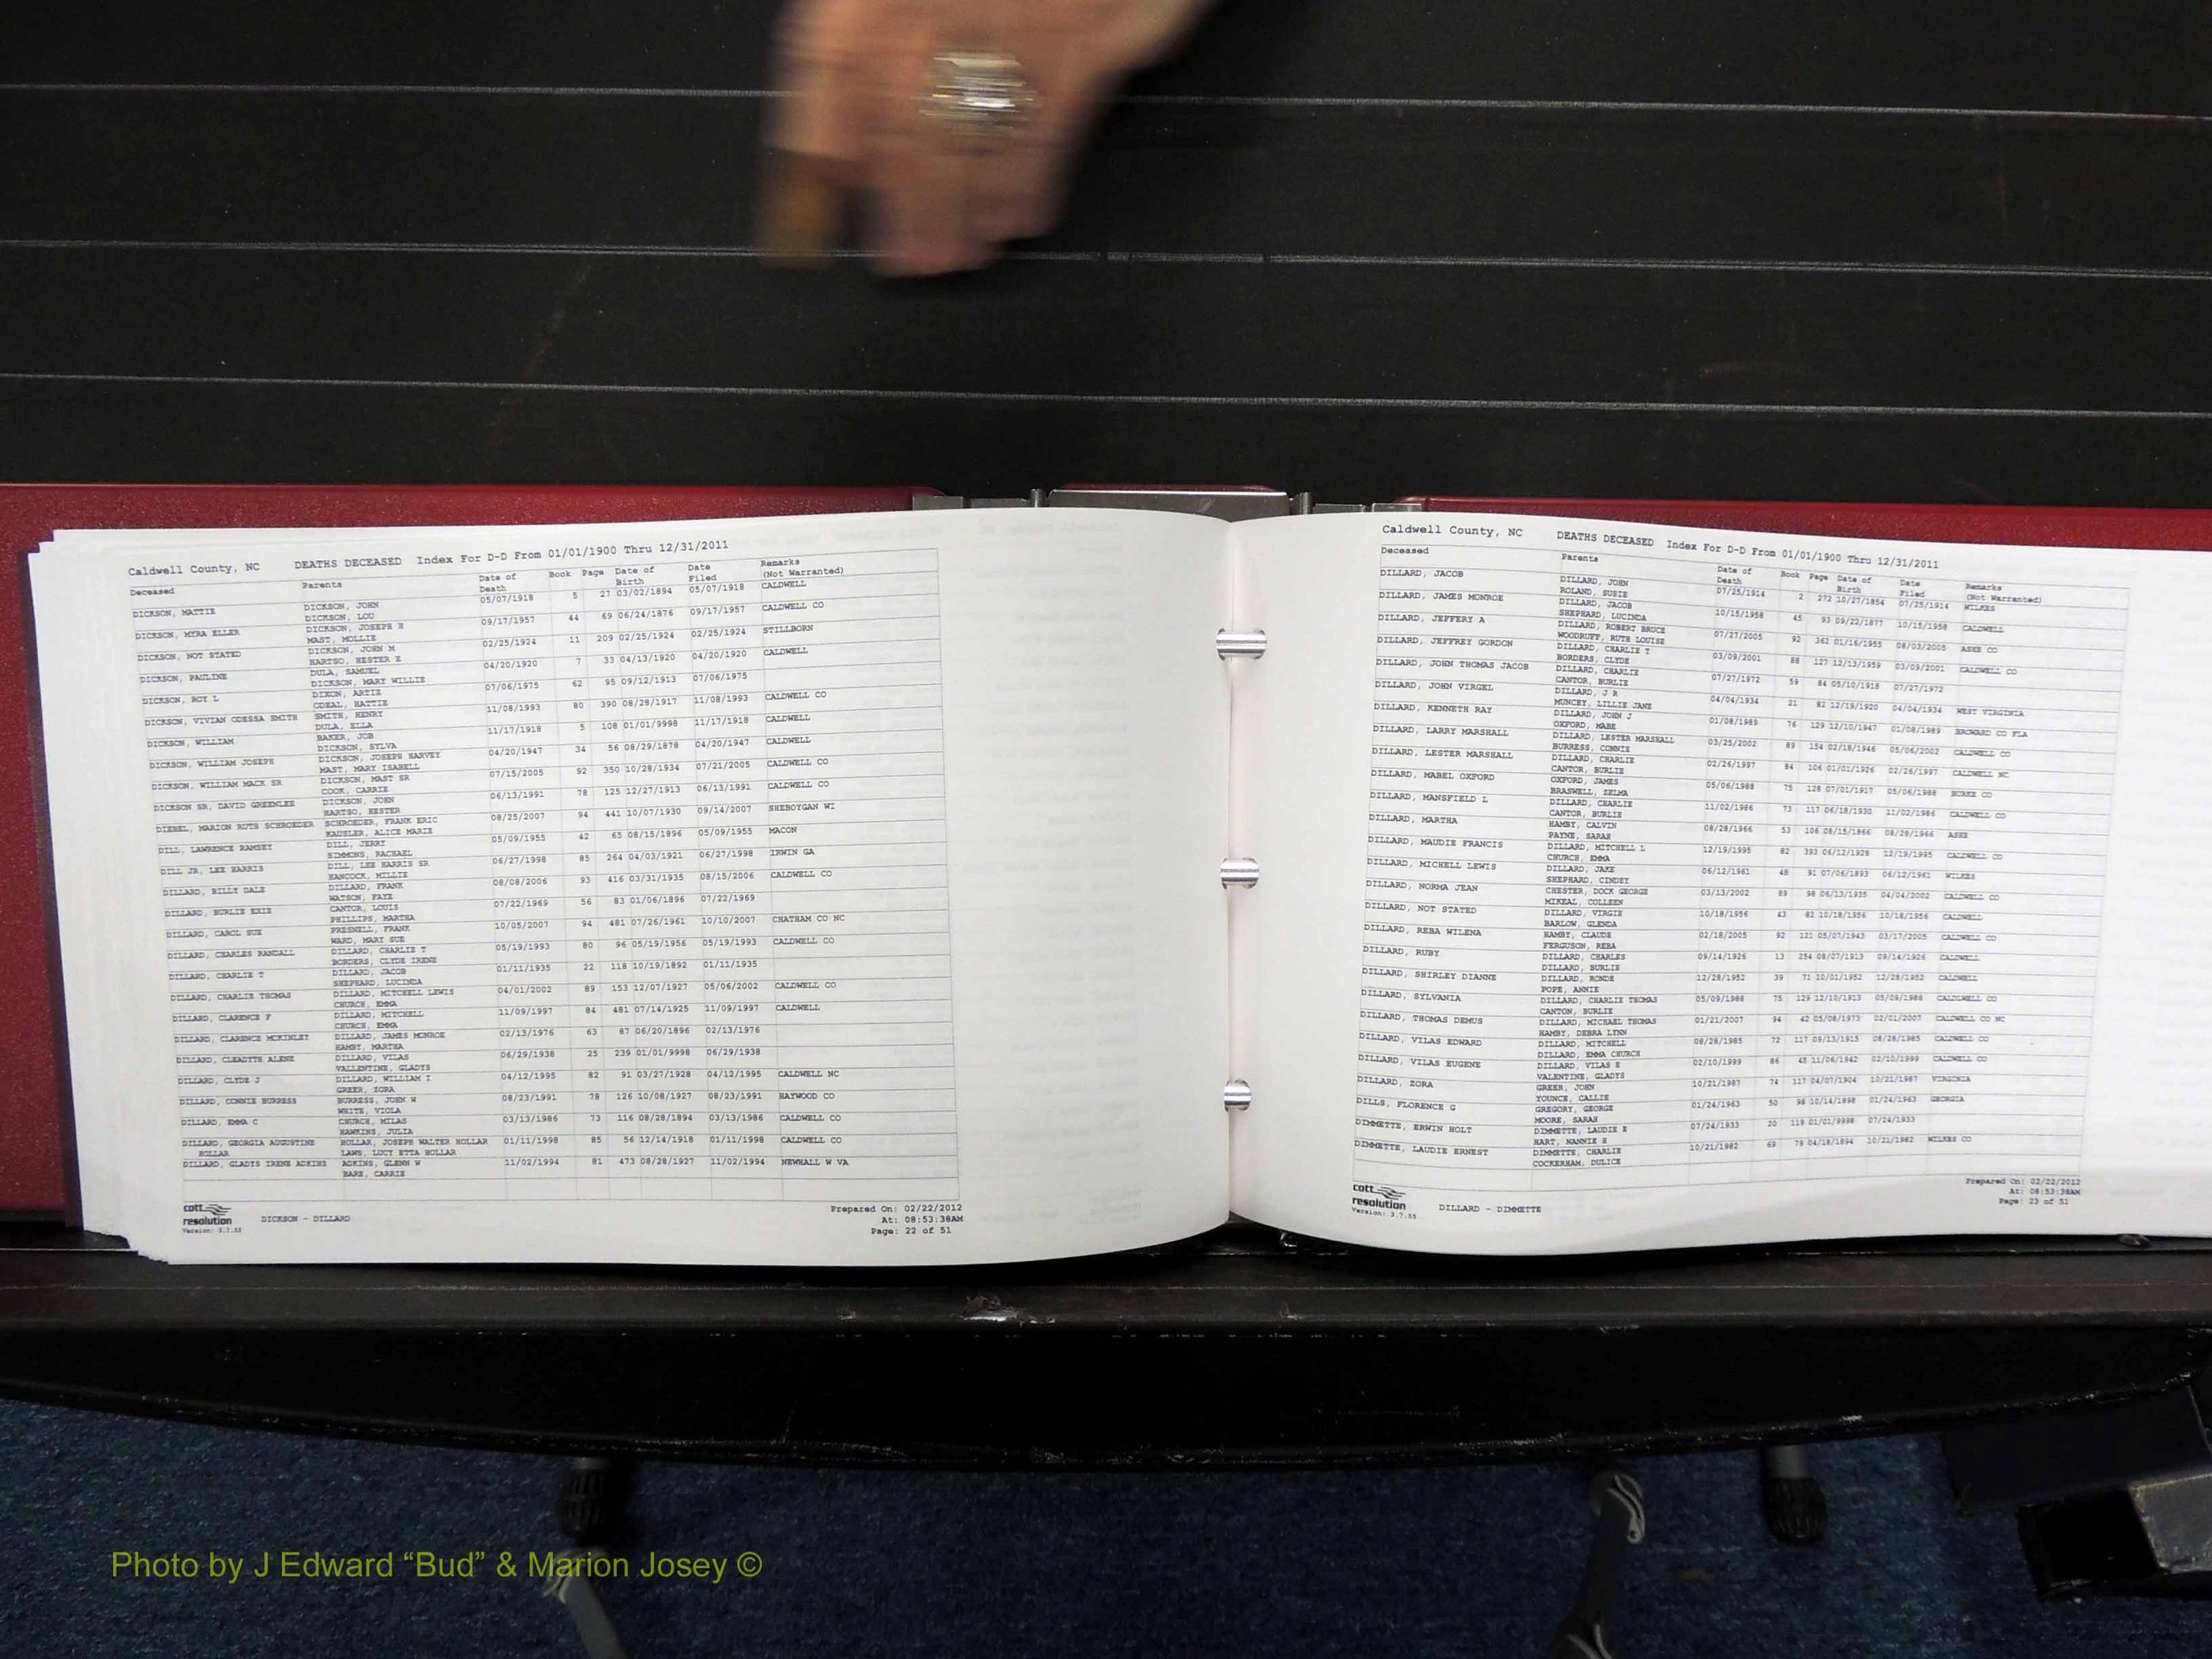 Caldwell County, NC DEATHS DECEASED Index For D-D From 01/01/1900 Thru 12/31/2011
Deceased Parents Date of Death Book Page Date of Birth Date Filed Remarks (Not Warranted)
DICKSON, MATTIE DICKSON, JOHN 05/07/1918 5 27 03/02/1894 05/07/1918 CALDWELL
DICKSON, LOU
DICKSON, MYRA ELLER DICKSON, JOSEPH H 09/17/1957 44 69 06/24/1876 09/17/1957 CALDWELL CO
MAST, MOLLIE
DICKSON, NOT STATED DICKSON, JOHN M 02/25/1924 11 209 02/25/1924 02/25/1924 STILLBORN
HARTSO, HESTER E
DICKSON, PAULINE DULA, SAMUEL 04/20/1920 7 33 04/13/1920 04/20/1920 CALDWELL
DICKSON, MARY WILLIE
DICKSON, ROY L DIXON, ARTIE 07/06/1975 62 95 09/12/1913 07/06/1975
ODEAL, HATTIE
DICKSON, VIVIAN ODESSA SMITH SMITH, HENRY 11/08/1993 80 390 08/28/1917 11/08/1993 CALDWELL CO
DULA, ELLA
DICKSON, WILLIAM BAKER, JOB 11/17/1918 5 108 01/01/9998 11/17/1918 CALDWELL
DICKSON, SYLVA
DICKSON, WILLIAM JOSEPH DICKSON, JOSEPH HARVEY 04/20/1947 34 56 08/29/1878 04/20/1947 CALDWELL
MAST, MARY ISABELL
DICKSON, WILLIAM MACK SR DICKSON, MAST SR 07/15/2005 92 350 10/28/1934 07/21/2005 CALDWELL CO
COOK, CARRIE
DICKSON SR, DAVID GREENLEE DICKSON, JOHN 06/13/1991 78 125 12/27/1913 06/13/1991 CALDWELL CO
HARTSO, HESTER
DIEBEL, MARION RUTH SCHROEDER SCHROEDER, FRANK ERIC 08/25/2007 94 441 10/07/1930 09/14/2007 SHEBOYGAN WI
KAUSLER, ALICE MARIE
DILL, LAWRENCE RAMSEY DILL, JERRY 05/09/1955 42 65 08/15/1896 05/09/1955 MACON
SIMMONS, RACHAEL
DILL JR, LEE HARRIS DILL, LEE HARRIS SR 06/27/1998 85 264 04/03/1921 06/27/1998 IRWIN GA
HANCOCK, MILLIE
DILLARD, BILLY DALE DILLARD, FRANK 08/08/2006 93 416 03/31/1935 08/15/2006 CALDWELL CO
WATSON, FAYE
DILLARD, BURLIE EXIE CANTOR, LOUIS 07/22/1969 56 83 01/06/1896 07/22/1969
PHILLIPS, MARTHA
DILLARD, CAROL SUE PRESNELL, FRANK 10/05/2007 94 481 07/26/1961 10/10/2007 CHATHAM CO NC
WARD, MARY SUE
DILLARD, CHARLES RANDALL DILLARD, CHARLIE T 05/19/1993 80 96 05/19/1956 05/19/1993 CALDWELL CO
BORDERS, CLYDE IRENE
DILLARD, CHARLIE T DILLARD, JACOB 01/11/1935 22 118 10/19/1892 01/11/1935
SHEPHARD, LUCINDA
DILLARD, CHARLIE THOMAS DILLARD, MITCHELL LEWIS 04/01/2002 89 153 12/07/1927 05/06/2002 CALDWELL CO
CHURCH, EMMA
DILLARD, CLARENCE F DILLARD, MITCHELL 11/09/1997 84 481 07/14/1925 11/09/1997 CALDWELL
CHURCH, EMMA
DILLARD, CLARENCE MCKINLEY DILLARD, JAMES MONROE 02/13/1976 63 87 06/20/1896 02/13/1976
HAMBY, MARTHA
DILLARD, CLEADYTH ALENE DILLARD, VILAS 06/29/1938 25 239 01/01/9998 06/29/1938
VALLENTINE, GLADYS
DILLARD, CLYDE J DILLARD, WILLIAM I 04/12/1995 82 91 03/27/1928 04/12/1995 CALDWELL NC
GREER, ZORA
DILLARD, CONNIE BURRESS BURRESS, JOHN W 08/23/1991 78 126 10/08/1927 08/23/1991 HAYWOOD CO
WHITE, VIOLA
DILLARD, EMMA C CHURCH, MILAS 03/13/1986 73 116 08/28/1894 03/13/1986 CALDWELL CO
HAWKINS, JULIA
DILLARD, GEORGIA AUGUSTINE HOLLAR, JOSEPH WALTER HOLLAR 01/11/1998 85 56 12/14/1918 01/11/1998 CALDWELL CO
HOLLAR LAWS, LUCY ETTA HOLLAR
DILLARD, GLADYS IRENE ADKINS ADKINS, GLENN W 11/02/1994 81 473 08/28/1927 11/02/1994 NEWHALL W VA
BARE, CARRIE
cott resolution
Version: 3.7.55
DICKSON - DILLARD
Prepared On: 02/22/2012
At: 08:53:38AM
Page: 22 of 51
Caldwell County, NC DEATHS DECEASED Index For D-D From 01/01/1900 Thru 12/31/2011
Deceased Parents Date of Death Book Page Date of Birth Date Filed Remarks (Not Warranted)
DILLARD, JACOB DILLARD, JOHN 07/25/1914 2 272 10/27/1854 07/25/1914 WILKES
ROLAND, SUSIE
DILLARD, JAMES MONROE DILLARD, JACOB 10/15/1958 45 93 09/22/1877 10/15/1958 CALDWELL
SHEPHARD, LUCINDA
DILLARD, JEFFERY A DILLARD, ROBERT BRUCE 07/27/2005 92 362 01/16/1955 08/03/2005 ASHE CO
WOODRUFF, RUTH LOUISE
DILLARD, JEFFREY GORDON DILLARD, CHARLIE T 03/09/2001 88 127 12/13/1959 03/09/2001 CALDWELL CO
BORDERS, CLYDE
DILLARD, JOHN THOMAS JACOB DILLARD, CHARLIE 07/27/1972 59 84 05/10/1918 07/27/1972
CANTOR, BURLIE
DILLARD, JOHN VIRGEL DILLARD, J R 04/04/1934 21 82 12/19/1920 04/04/1934 WEST VIRGINIA
MUNCEY, LILLIE JANE
DILLARD, KENNETH RAY DILLARD, JOHN J 01/08/1989 76 129 12/10/1947 01/08/1989 BROWARD CO FLA
OXFORD, MABE
DILLARD, LARRY MARSHALL DILLARD, LESTER MARSHALL 03/25/2002 89 154 02/18/1946 05/06/2002 CALDWELL CO
BURRESS, CONNIE
DILLARD, LESTER MARSHALL DILLARD, CHARLIE 02/26/1997 84 106 01/01/1926 02/26/1997 CALDWELL NC
CANTOR, BURLIE
DILLARD, MABEL OXFORD OXFORD, JAMES 05/06/1988 75 128 07/01/1917 05/06/1988 BURKE CO
BRASWELL, ZELMA
DILLARD, MANSFIELD L DILLARD, CHARLIE 11/02/1986 73 117 06/18/1930 11/02/1986 CALDWELL CO
CANTOR, BURLIE
DILLARD, MARTHA HAMBY, CALVIN 08/28/1966 53 106 08/15/1866 08/28/1966 ASHE
PAYNE, SARAH
DILLARD, MAUDIE FRANCIS DILLARD, MITCHELL L 12/19/1995 82 393 06/12/1928 12/19/1995 CALDWELL CO
CHURCH, EMMA
DILLARD, MICHELL LEWIS DILLARD, JAKE 06/12/1961 48 91 07/06/1893 06/12/1961 WILKES
SHEPHARD, CINDEY
DILLARD, NORMA JEAN CHESTER, DOCK GEORGE 03/13/2002 89 98 06/13/1935 04/04/2002 CALDWELL
MIKEAL, COLLEEN
DILLARD, NOT STATED DILLARD, VIRGIE 10/18/1956 43 82 10/18/1956 10/18/1956 CALDWELL
BARLOW, GLENDA
DILLARD, REBA WILENA HAMBY, CLAUDE 02/18/2005 92 121 05/07/1943 03/17/2005 CALDWELL CO
FERGUSON, REBA
DILLARD, RUBY DILLARD, CHARLES 09/14/1926 13 254 08/07/1913 09/14/1926 CALDWELL
DILLARD, BURLIE
DILLARD, SHIRLEY DIANNE DILLARD, RONDE 12/28/1952 39 71 10/01/1952 12/28/1952 CALDWELL
POPE, ANNIE
DILLARD, SYLVANIA DILLARD, CHARLIE THOMAS 05/09/1988 75 129 12/10/1913 05/09/1988 CALDWELL CO
CANTON, BURLIE
DILLARD, THOMAS DEMUS DILLARD, MICHAEL THOMAS 01/21/2007 94 42 05/08/1973 02/01/2007 CALDWELL CO NC
HAMBY, DEBRA LYNN
DILLARD, VILAS EDWARD DILLARD, MITCHELL 08/28/1985 72 117 09/13/1915 08/28/1985 CALDWELL CO
DILLARD, EMMA CHURCH
DILLARD, VILAS EUGENE DILLARD, VILAS E 02/10/1999 86 45 11/06/1942 02/10/1999 CALDWELL CO
VALENTINE, GLADYS
DILLARD, ZORA GREER, JOHN 10/21/1987 74 117 04/07/1904 10/21/1987 VIRGINIA
YOUNCE, CALLIE
DILLS, FLORENCE G GREGORY, GEORGE 01/24/1963 50 98 10/14/1898 01/24/1963 GEORGIA
MOORE, SARAH
DIMMETTE, ERWIN HOLT DIMMETTE, LAUDIE E 07/24/1933 20 119 01/01/9998 07/24/1933
HART, NANNIE H
DIMMETTE, LAUDIE ERNEST DIMMETTE, CHARLIE 10/21/1982 69 79 04/18/1894 10/21/1982 WILKES CO
COCKERHAM, DULICE
cott resolution
Version: 3.7.55
DILLARD - DIMMETTE
Prepared On: 02/22/2012
At: 08:53:38AM
Page: 23 of 51
Photo by J Edward “Bud” & Marion Josey ©